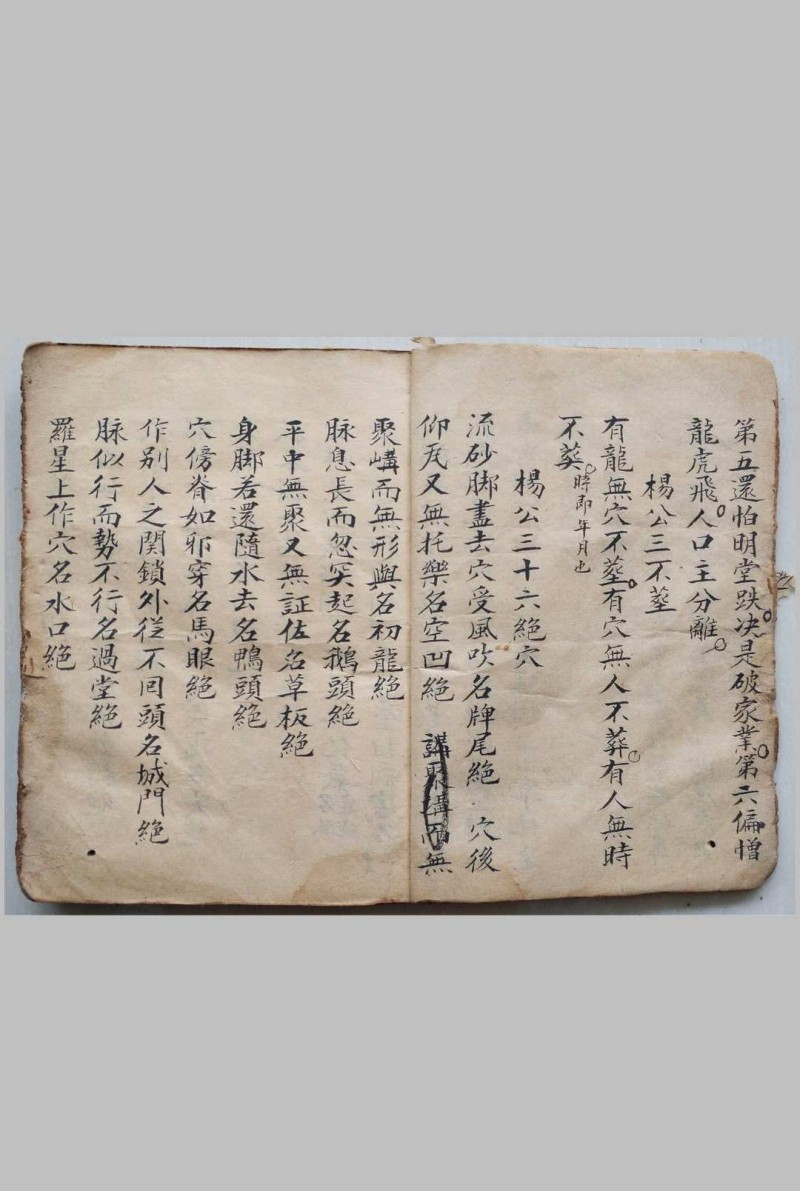 第五還怕明堂跌决是破家業第六偏憎
龍虎飛人口主分離
楊公三不塟
有龍無穴不塟有穴無人不葬有人無時
不葵時即年月也
楊公三十六絕穴
流砂脚盡去穴受風吹名牌尾絕 穴後
仰瓦又無托樂名空凹絕 講聚講而無
聚嵵而無形與名初龍絕
脉息長而忽突起名鵝頭絕
平中無聚又無証佐名草板絕
身脚若還隨水去名鴨頭絕
穴傍脊如邪穿名馬眼絕
作别人之関鎖外従不囘頭名城門絕
脉似行而勢不行名過堂絕
羅星上作穴名水口絕